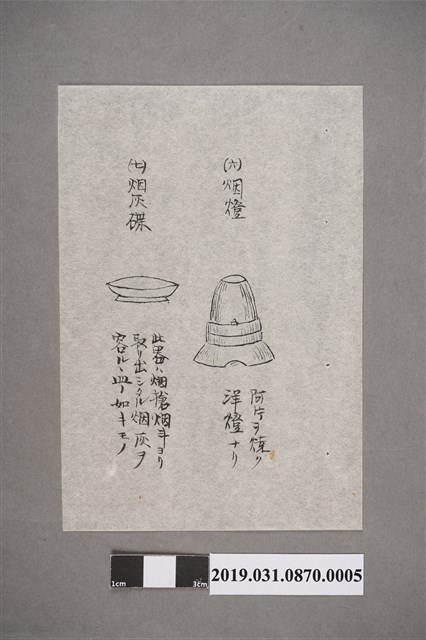 (六)烟燈
阿片ヲ煉ク
洋燈ナリ
(七)烟灰碟
此器ハ烟槍烟斗ヨリ
取リ出シタル烟灰ヲ
容ルヽ皿ノ如キモノ
1cm
3cm
2019.031.0870.0005